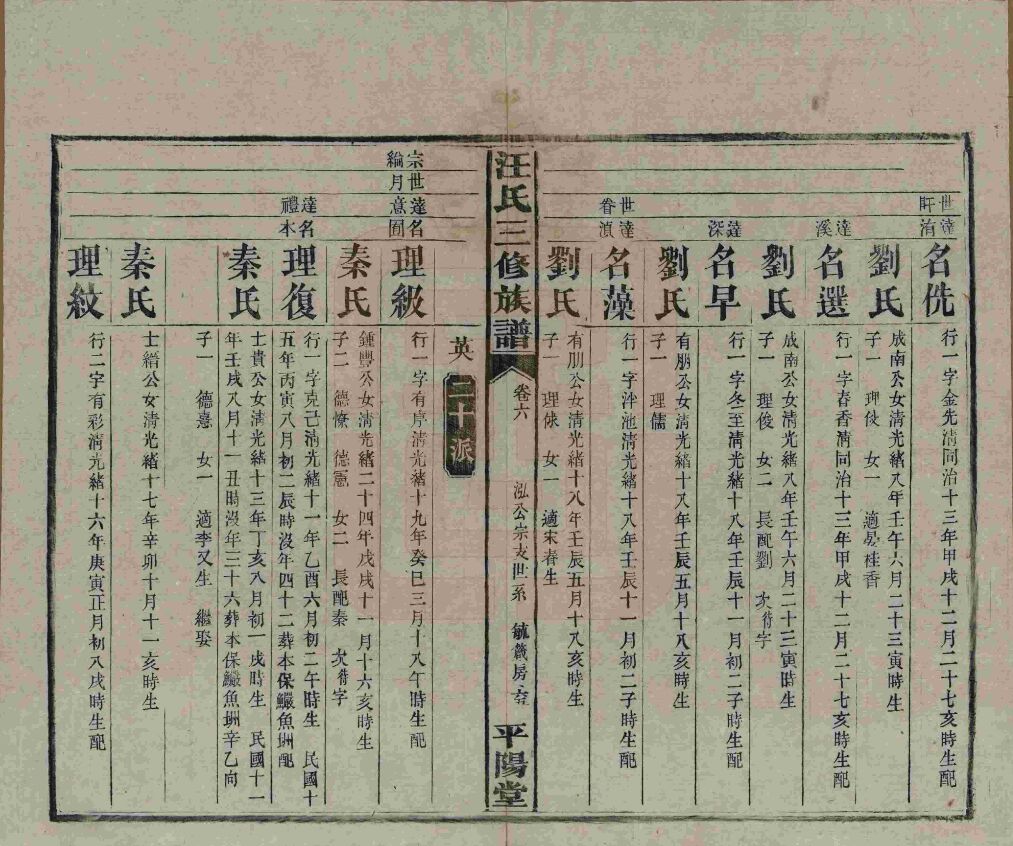 世達
盰洧
名侁
行一字金先淸同治十三年甲戌十二月二十七亥時生配
劉氏
成南公女淸光緒八年壬午六月二十三寅時生
子一 理伎 女一 適晏桂香
達
溪
名選
行一字春香淸同治十三年甲戌十二月二十七亥時生配
劉氏
成南公女淸光緒八年壬午六月二十三寅時生
子一 理俊 女二 長配劉 次待字
達
深
名早
行一字冬至淸光緒十八年壬辰十一月初二子時生配
劉氏
有朋公女淸光緒十八年壬辰五月十八亥時生
子一 理儒
世達
眷滇
名藻
行一字泮池淸光緒十八年壬辰十一月初二子時生配
劉氏
有朋公女淸光緒十八年壬辰五月十八亥時生
子一 理俅 女一 適宋春生
汪氏三修族譜
卷六
泓公宗支世系
毓 房
平陽堂
英
二十派
宗世達名
綸月意囿
理級
行一字有序淸光緒十九年癸巳三月十八午時生配
秦氏
鍾豐公女淸光緒二十四年戊戌十一月十六亥時生
子二 德憮 德憲 女二 長配秦 次待字
達名
禮本
理復
行一字克己淸光緒十一年乙酉六月初二午時生 民國十
五年丙寅八月初二辰時沒年四十二葬本保鱖魚垇配
秦氏
士貴公女淸光緒十三年丁亥八月初一戌時生 民國十一
年壬戌八月十一丑時沒年三十六葬本保鱖魚垇辛乙向
子一 德意 女一 適李又生 繼娶
秦氏
士縉公女淸光緒十七年辛卯十月十一亥時生
理紋
行二字有彩淸光緒十六年庚寅正月初八戌時生配